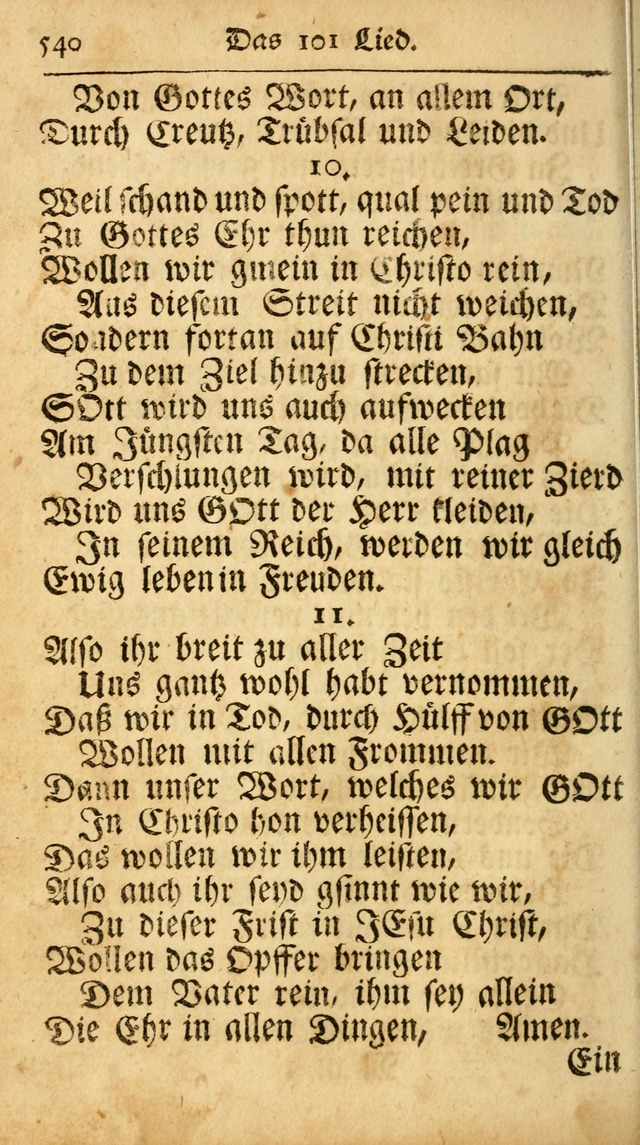 540 Das 101 Lied.
Von Gottes Wort, an allem Ort,
Durch Creutz, Trübsal und Leiden.
10.
Weil schand und spott, qual pein und Tod
Zu Gottes Ehr thun reichen,
Wollen wir gmein in Christo rein,
Aus diesem Streit nicht weichen,
Sondern fortan auf Christi Bahn
Zu dem Ziel hinzu strecken,
GOtt wird uns auch aufwecken
Am Jüngsten Tag, da alle Plag
Verschlungen wird, mit reiner Zierd
Wird uns GOtt der Herr kleiden,
In seinem Reich, werden wir gleich
Ewig leben in Freuden.
11.
Also ihr breit zu aller Zeit
Uns gantz wohl habt vernommen,
Daß wir in Tod, durch Hülff von GOtt
Wollen mit allen Frommen.
Dann unser Wort, welches wir GOtt
In Christo hon verheissen,
Das wollen wir ihm leisten,
Also auch ihr seyd gsinnt wie wir,
Zu dieser Frist in JEsu Christ,
Wollen das Opffer bringen
Dem Vater rein, ihm sey allein
Die Ehr in allen Dingen, Amen.
Ein